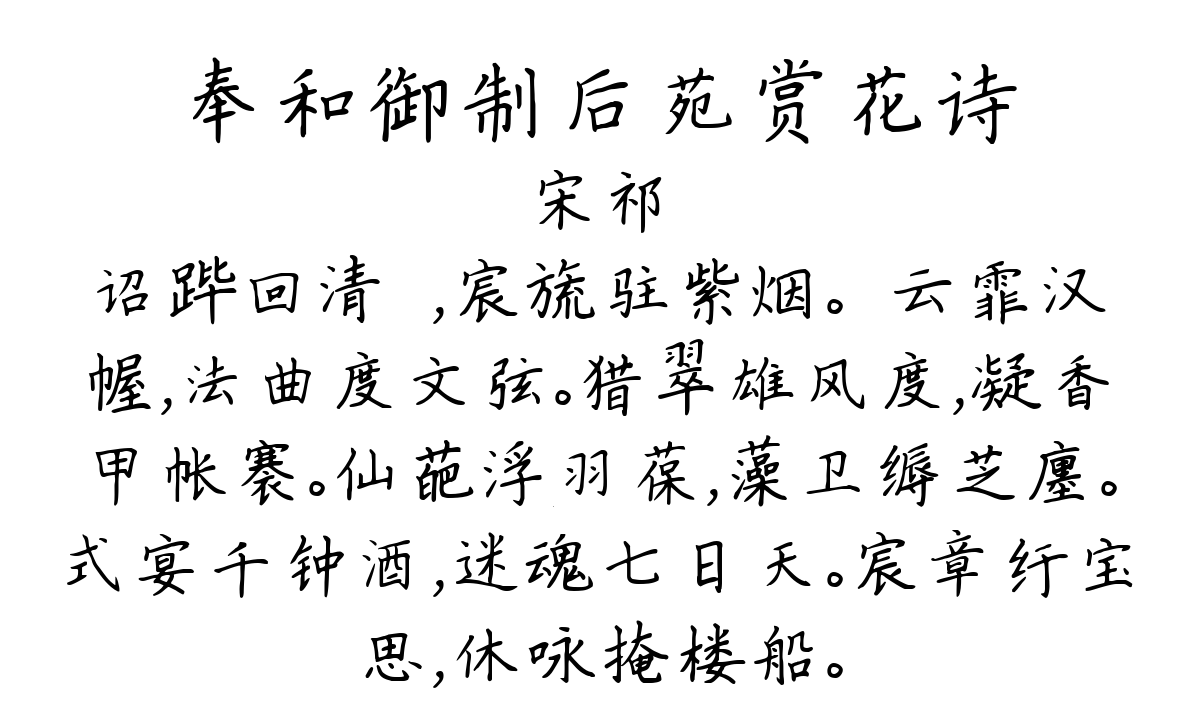 奉和御制后苑赏花诗
宋祁
诏跸回清 ,宸旒驻紫烟。云霏汉
幄,法曲度文弦。猎翠雄风度,凝香
甲帐褰。仙葩浮羽葆,藻卫缛芝廛。
式宴千钟酒,迷魂七日天。宸章纡宝
思,休咏掩楼船。